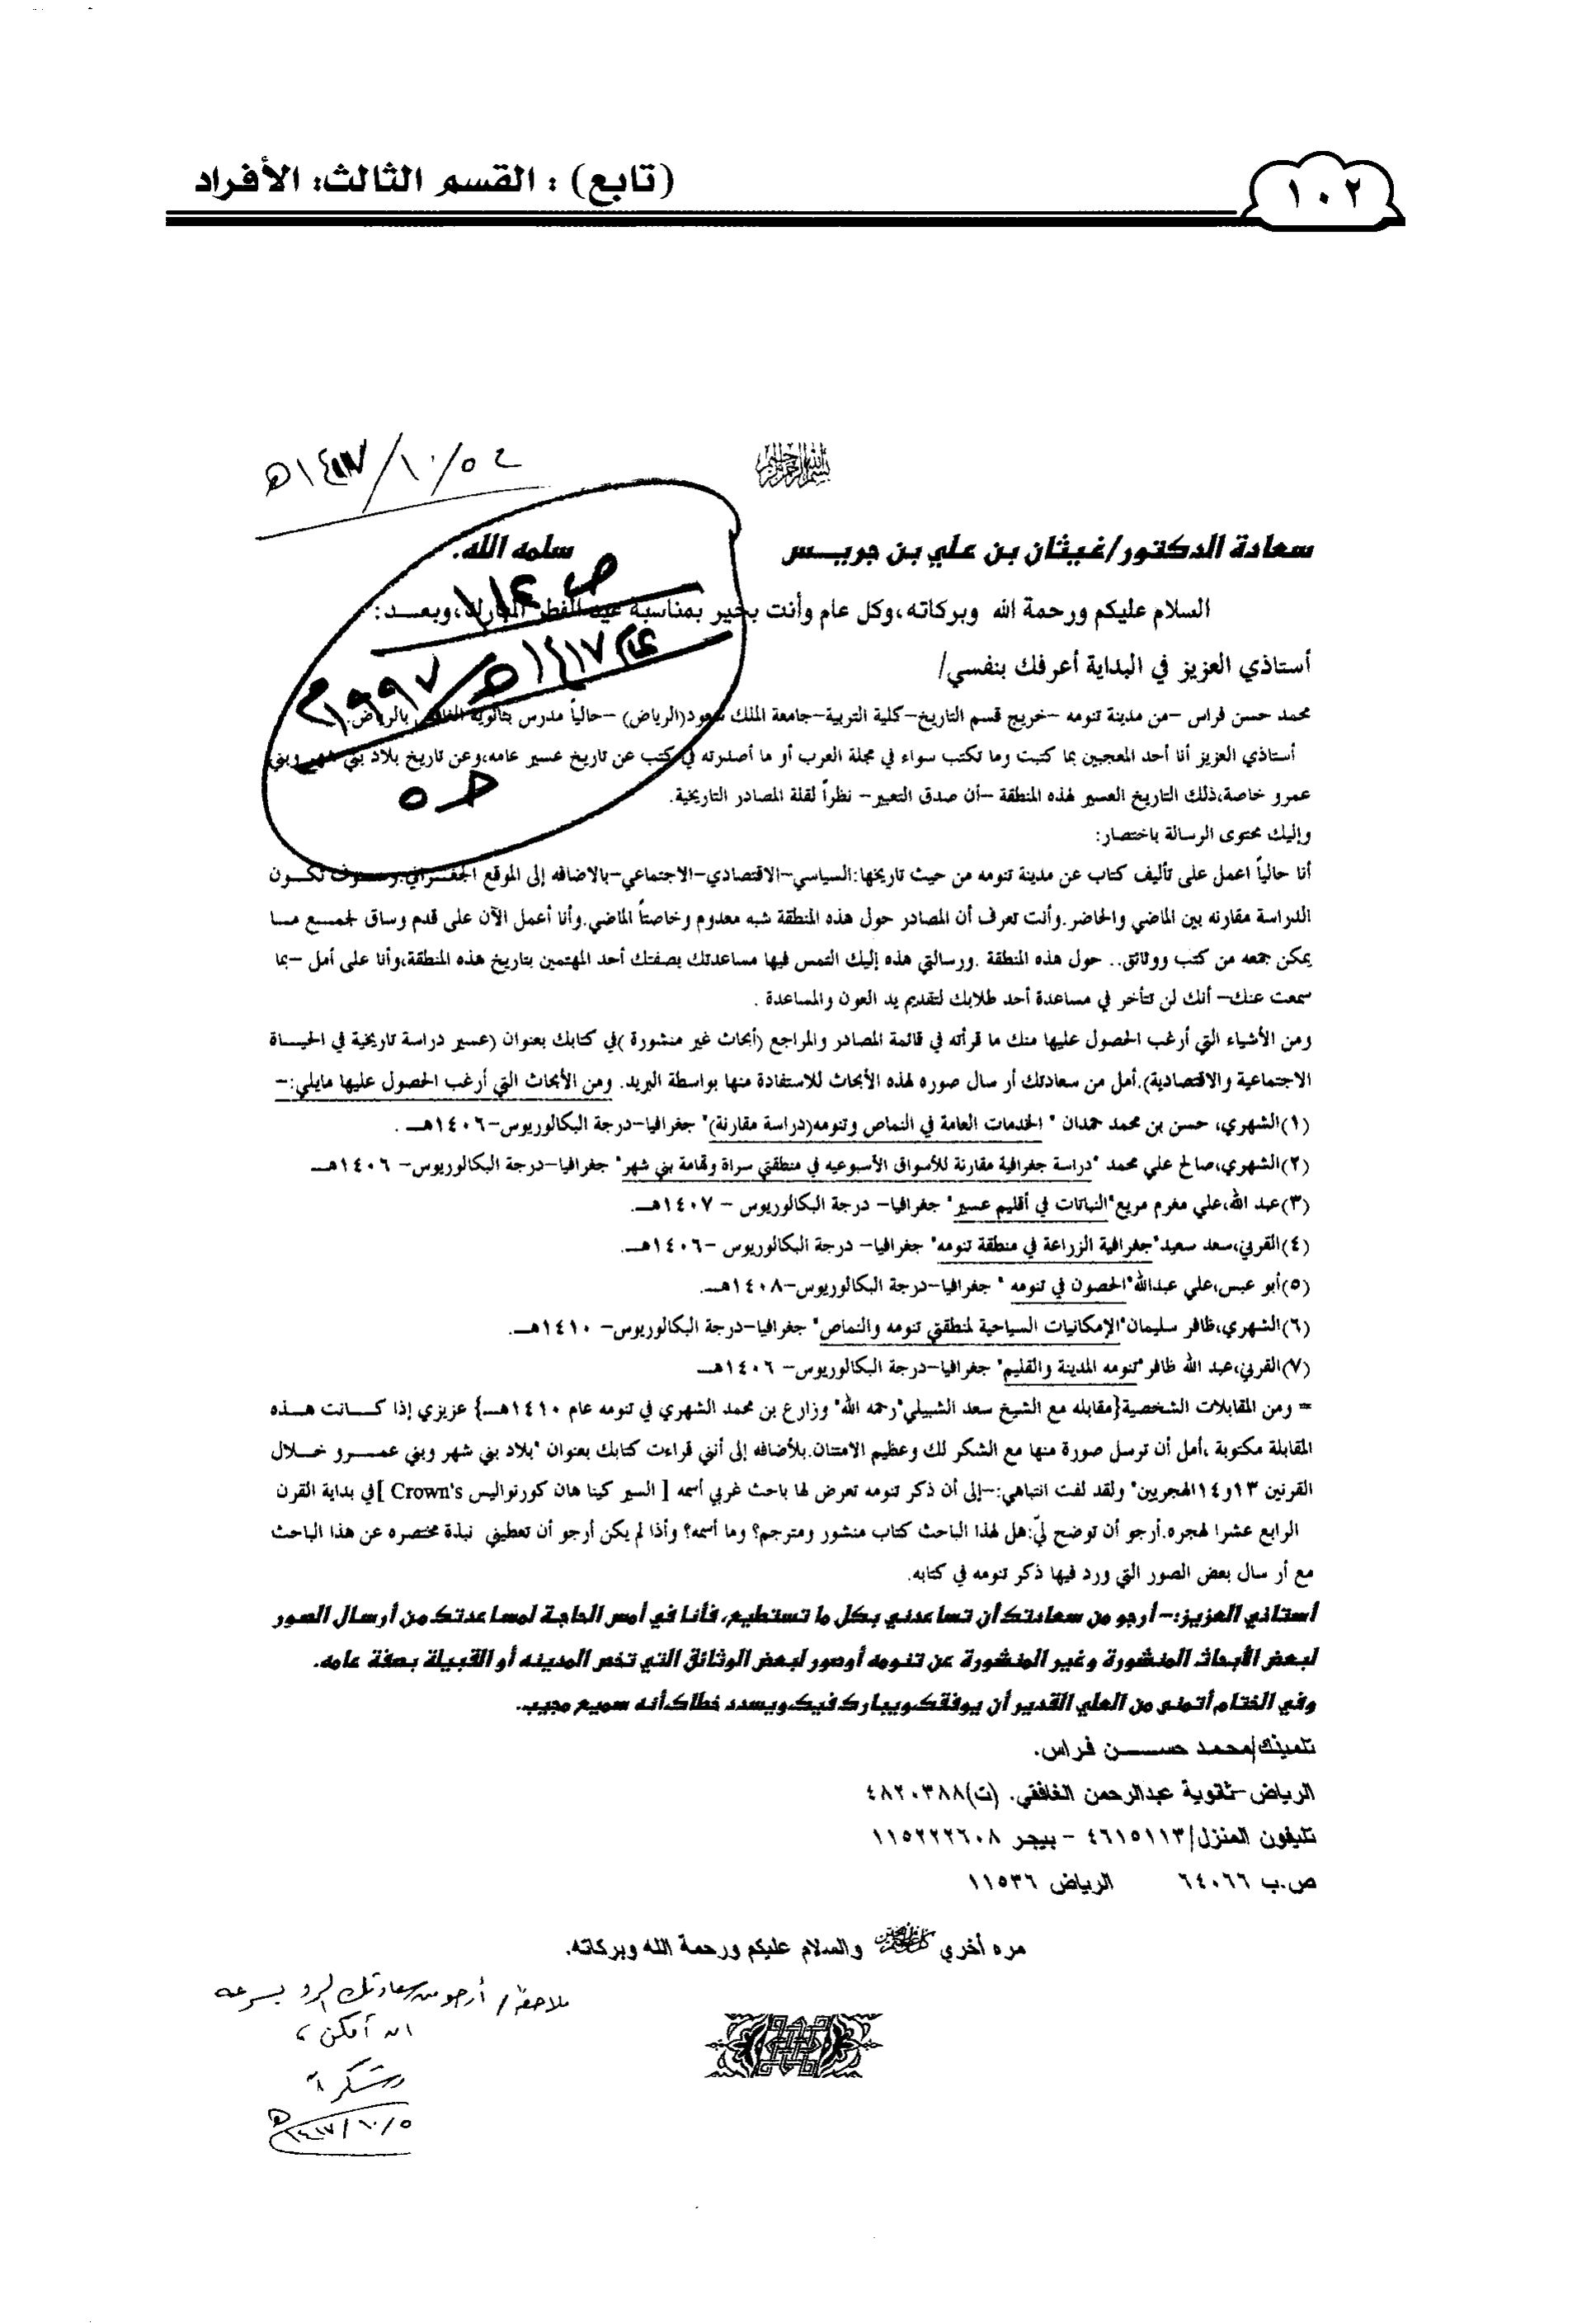 (تابع) : القسم الثالث: الأفراد
١٠٢
بسم الله الرحمن الرحيم
١٤١٧/١٠/٥هـ
سعادة الدكتور/غيثان بن علي بن جريــس سلمه الله.
السلام عليكم ورحمة الله وبركاته،وكل عام وأنت بخير بمناسبة عيد الفطر المبارك،وبعــد:
أستاذي العزيز في البداية أعرفك بنفسي/
محمد حسن فراس –من مدينة تنومه –خريج قسم التاريخ–كلية التربية–جامعة الملك سعود(الرياض) –حالياً مدرس بثانوية الغافقي بالرياض.
أستاذي العزيز أنا أحد المعجبين بما كتبت وما تكتب سواء في مجلة العرب أو ما أصدرته في كتب عن تاريخ عسير عامه،وعن تاريخ بلاد بني شهر وبني
عمرو خاصة،ذلك التاريخ العسير لهذه المنطقة –أن صدق التعبير– نظراً لقلة المصادر التاريخية.
وإليك محتوى الرسالة باختصار:
أنا حالياً اعمل على تأليف كتاب عن مدينة تنومه من حيث تاريخها:السياسي–الاقتصادي–الاجتماعي–بالاضافه إلى الموقع الجغــرافي.وســوف تكــون
الدراسة مقارنه بين الماضي والحاضر.وأنت تعرف أن المصادر حول هذه المنطقة شبه معدوم وخاصتاً الماضي.وأنا أعمل الآن على قدم وساق لجمــيع مــا
يمكن جمعه من كتب ووثائق.. حول هذه المنطقة .ورسالتي هذه إليك التمس فيها مساعدتك بصفتك أحد المهتمين بتاريخ هذه المنطقة،وأنا على أمل –بما
سمعت عنك– أنك لن تتأخر في مساعدة أحد طلابك لتقديم يد العون والمساعدة .
ومن الأشياء التي أرغب الحصول عليها منك ما قرأته في قائمة المصادر والمراجع (أبحاث غير منشورة )في كتابك بعنوان (عسير دراسة تاريخية في الحيــاة
الاجتماعية والاقتصادية).أمل من سعادتك أر سال صوره لهذه الأبحاث للاستفادة منها بواسطة البريد. ومن الأبحاث التي أرغب الحصول عليها مايلي:–
(١)الشهري، حسن بن محمد حمدان " الخدمات العامة في النماص وتنومه(دراسة مقارنة)" جغرافيا–درجة البكالوريوس–١٤٠٦هــ .
(٢)الشهري،صالح علي محمد "دراسة جغرافية مقارنة للأسواق الأسبوعيه في منطقتي سراة وتهامة بني شهر" جغرافيا–درجة البكالوريوس– ١٤٠٦هــ
(٣)عبد الله،علي مغرم مريع"النباتات في أقليم عسير" جغرافيا– درجة البكالوريوس – ١٤٠٧هــ.
(٤)القرني،سعد سعيد"جغرافية الزراعة في منطقة تنومه" جغرافيا– درجة البكالوريوس –١٤٠٦هــ.
(٥)أبو عبس،علي عبدالله"الحصون في تنومه " جغرافيا–درجة البكالوريوس–١٤٠٨هــ.
(٦)الشهري،ظافر سليمان"الإمكانيات السياحية لمنطقتي تنومه والنماص" جغرافيا–درجة البكالوريوس– ١٤١٠هــ.
(٧)القرني،عبد الله ظافر"تنومه المدينة والقليم" جغرافيا–درجة البكالوريوس– ١٤٠٦هــ
= ومن المقابلات الشخصية{مقابله مع الشيخ سعد الشبيلي"رحمه الله" وزارع بن محمد الشهري في تنومه عام ١٤١٠هــ} عزيزي إذا كــانت هــذه
المقابلة مكتوبة ،أمل أن ترسل صورة منها مع الشكر لك وعظيم الامتنان.بلأضافه إلى أنني قراءت كتابك بعنوان "بلاد بني شهر وبني عمــرو خــلال
القرنين ١٣و١٤الهجريين" ولقد لفت انتباهي:–إلى أن ذكر تنومه تعرض لها باحث غربي أسمه [ السير كينا هان كورنواليس Crown's ]في بداية القرن
الرابع عشرا لهجره.أرجو أن توضح ليّ:هل لهذا الباحث كتاب منشور ومترجم؟ وما أسمه؟ وأذا لم يكن أرجو أن تعطيني نبذة مختصره عن هذا الباحث
مع أر سال بعض الصور التي ورد فيها ذكر تنومه في كتابه.
أستاذي العزيز:– أرجو من سعادتك أن تساعدني بكل ما تستطيع، فأنا في أمس الحاجة لمساعدتك من أرسال الصور
لبعض الأبحاث المنشورة وغير المنشورة عن تنومه أوصور لبعض الوثائق التي تخص المدينه أو القبيلة بصفة عامه.
وفي الختام أتمنى من العلي القدير أن يوفقك ويبارك فيك ويسدد خطاك.أنه سميع مجيب.
تلميذك/محمد حســـن فراس.
الرياض–ثانوية عبدالرحمن الغافقي. (ت)٤٨٢٠٣٨٨
تليفون المنزل/٤٦١٥١١٣ – بيجر ١١٥٢٢٢٦٠٨
ص.ب ٦٤٠٦٦ الرياض ١١٥٣٦
مره أخري والسلام عليكم ورحمة الله وبركاته.
ملاحظة/ أرجو من سعادتك الرد بسرعه
ان أمكن ،
وشكراً
١٤١٧/١٠/٥هـ